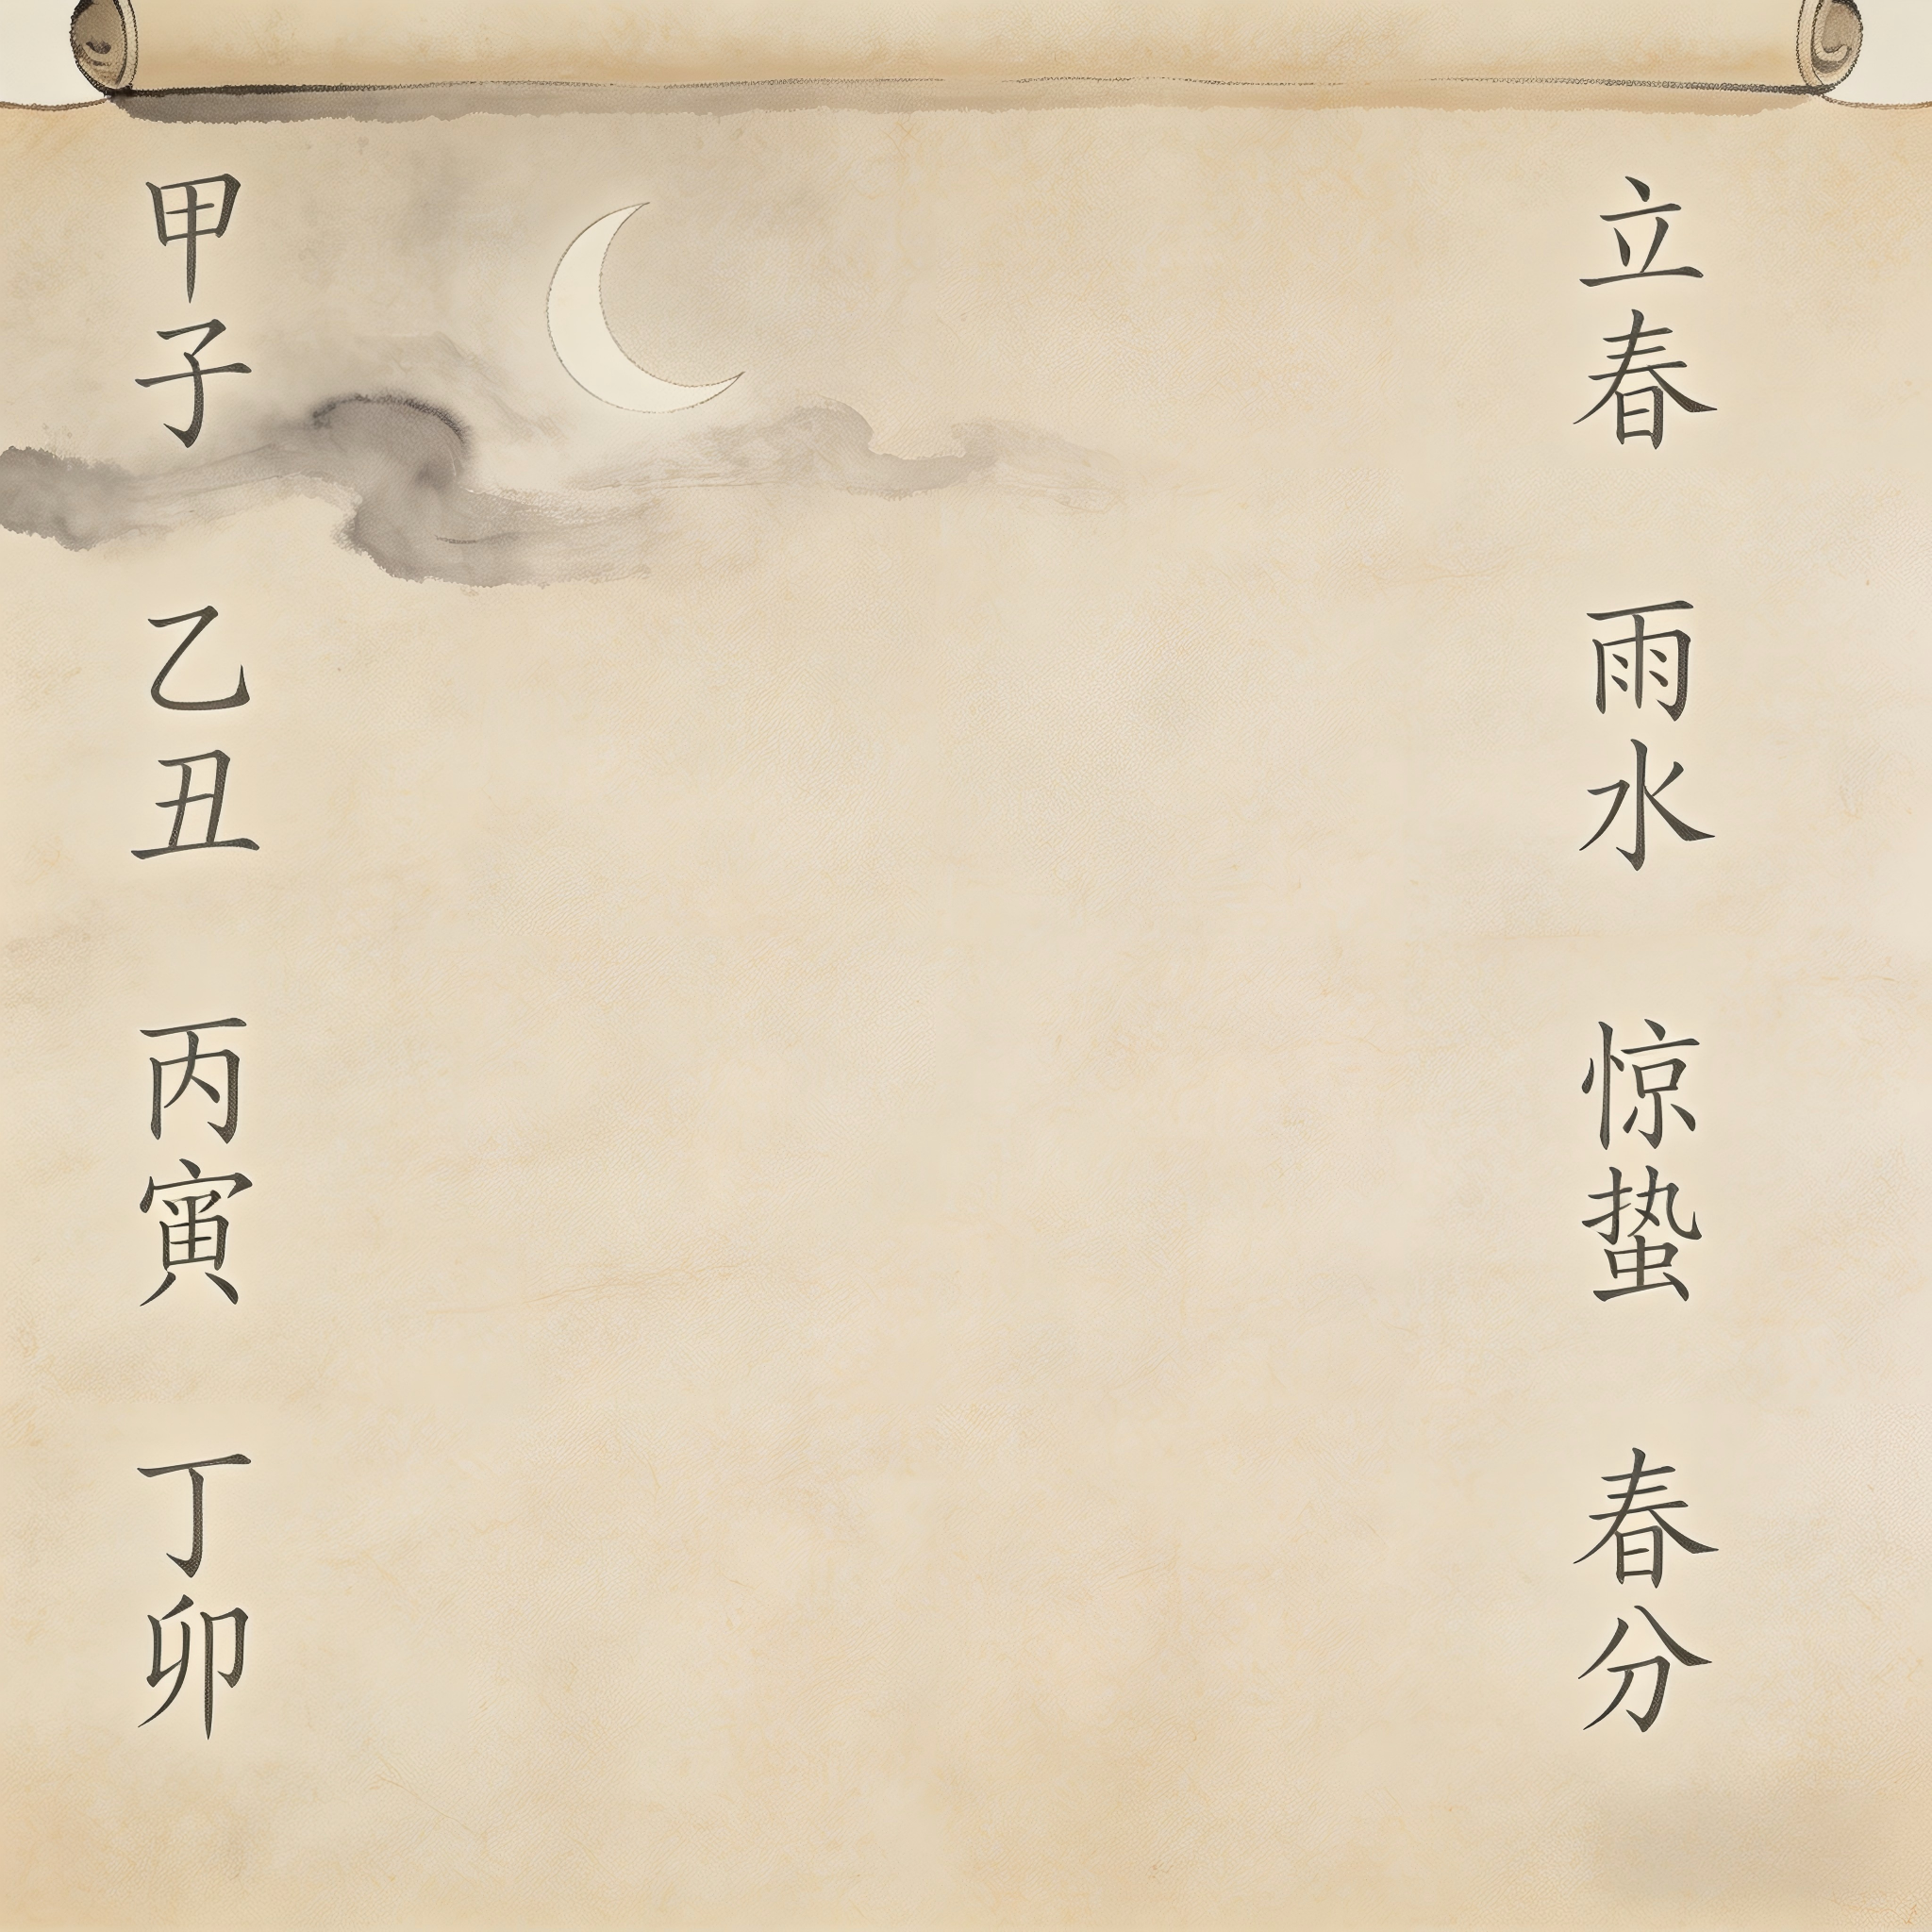 甲子
乙丑
丙寅
丁卯
立春
雨水
惊蛰
春分